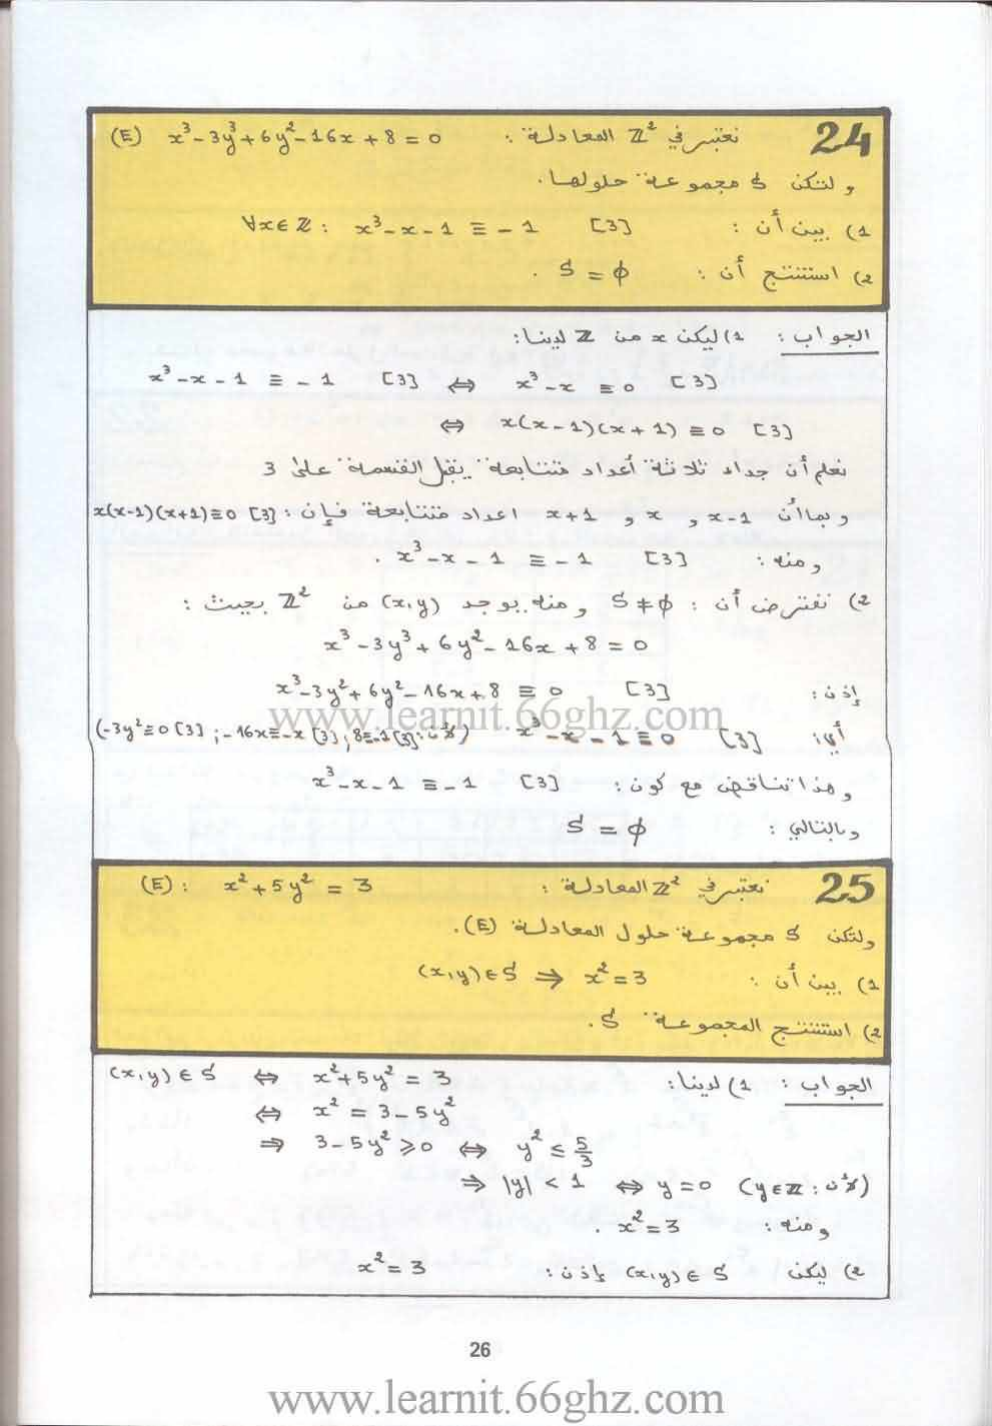 24 نعتبر في Z² المعادلة : (E) x³-3y³+6y²-16x+8=0
ولتكن S مجموعة حلولها.
1) بين أن : ∀x∈Z : x³-x-1 ≡ -1 [3]
2) استنتج أن : S = ϕ .
الجواب : 1) ليكن x من Z لدينا:
x³-x-1 ≡ -1 [3] ⇔ x³-x ≡ 0 [3]
⇔ x(x-1)(x+1) ≡ 0 [3]
نعلم أن جداء ثلاثة أعداد متتابعة يقبل القسمة على 3
وبما أن x-1 و x و x+1 اعداد متتابعة فإن : x(x-1)(x+1)≡0 [3]
ومنه : x³-x-1 ≡ -1 [3] .
2) نفترض أن : S≠ϕ ومنه يوجد (x,y) من Z² بحيث :
x³-3y³+6y²-16x+8=0
إذن : x³-3y²+6y²-16x+8 ≡ 0 [3]
أي : x³-x-1≡0 [3] (لأن : -3y²≡0 [3] ; -16x≡-x [3] ; 8≡-1 [3])
وهذا تناقض مع كون : x³-x-1 ≡ -1 [3]
وبالتالي : S = ϕ
25 نعتبر في Z² المعادلة : (E) : x²+5y² = 3
ولتكن S مجموعة حلول المعادلة (E).
1) بين أن : (x,y)∈S ⇒ x²=3
2) استنتج المجموعة S.
الجواب : 1) لدينا : (x,y)∈S ⇔ x²+5y² = 3
⇔ x² = 3-5y²
⇒ 3-5y² ⩾ 0 ⇔ y² ≤ 5/3
⇒ |y| < 1 ⇔ y=0 (لأن : y∈Z)
ومنه : x²=3 .
2) ليكن (x,y)∈S إذن : x²=3
26
www.learnit.66ghz.com
www.learnit.66ghz.com